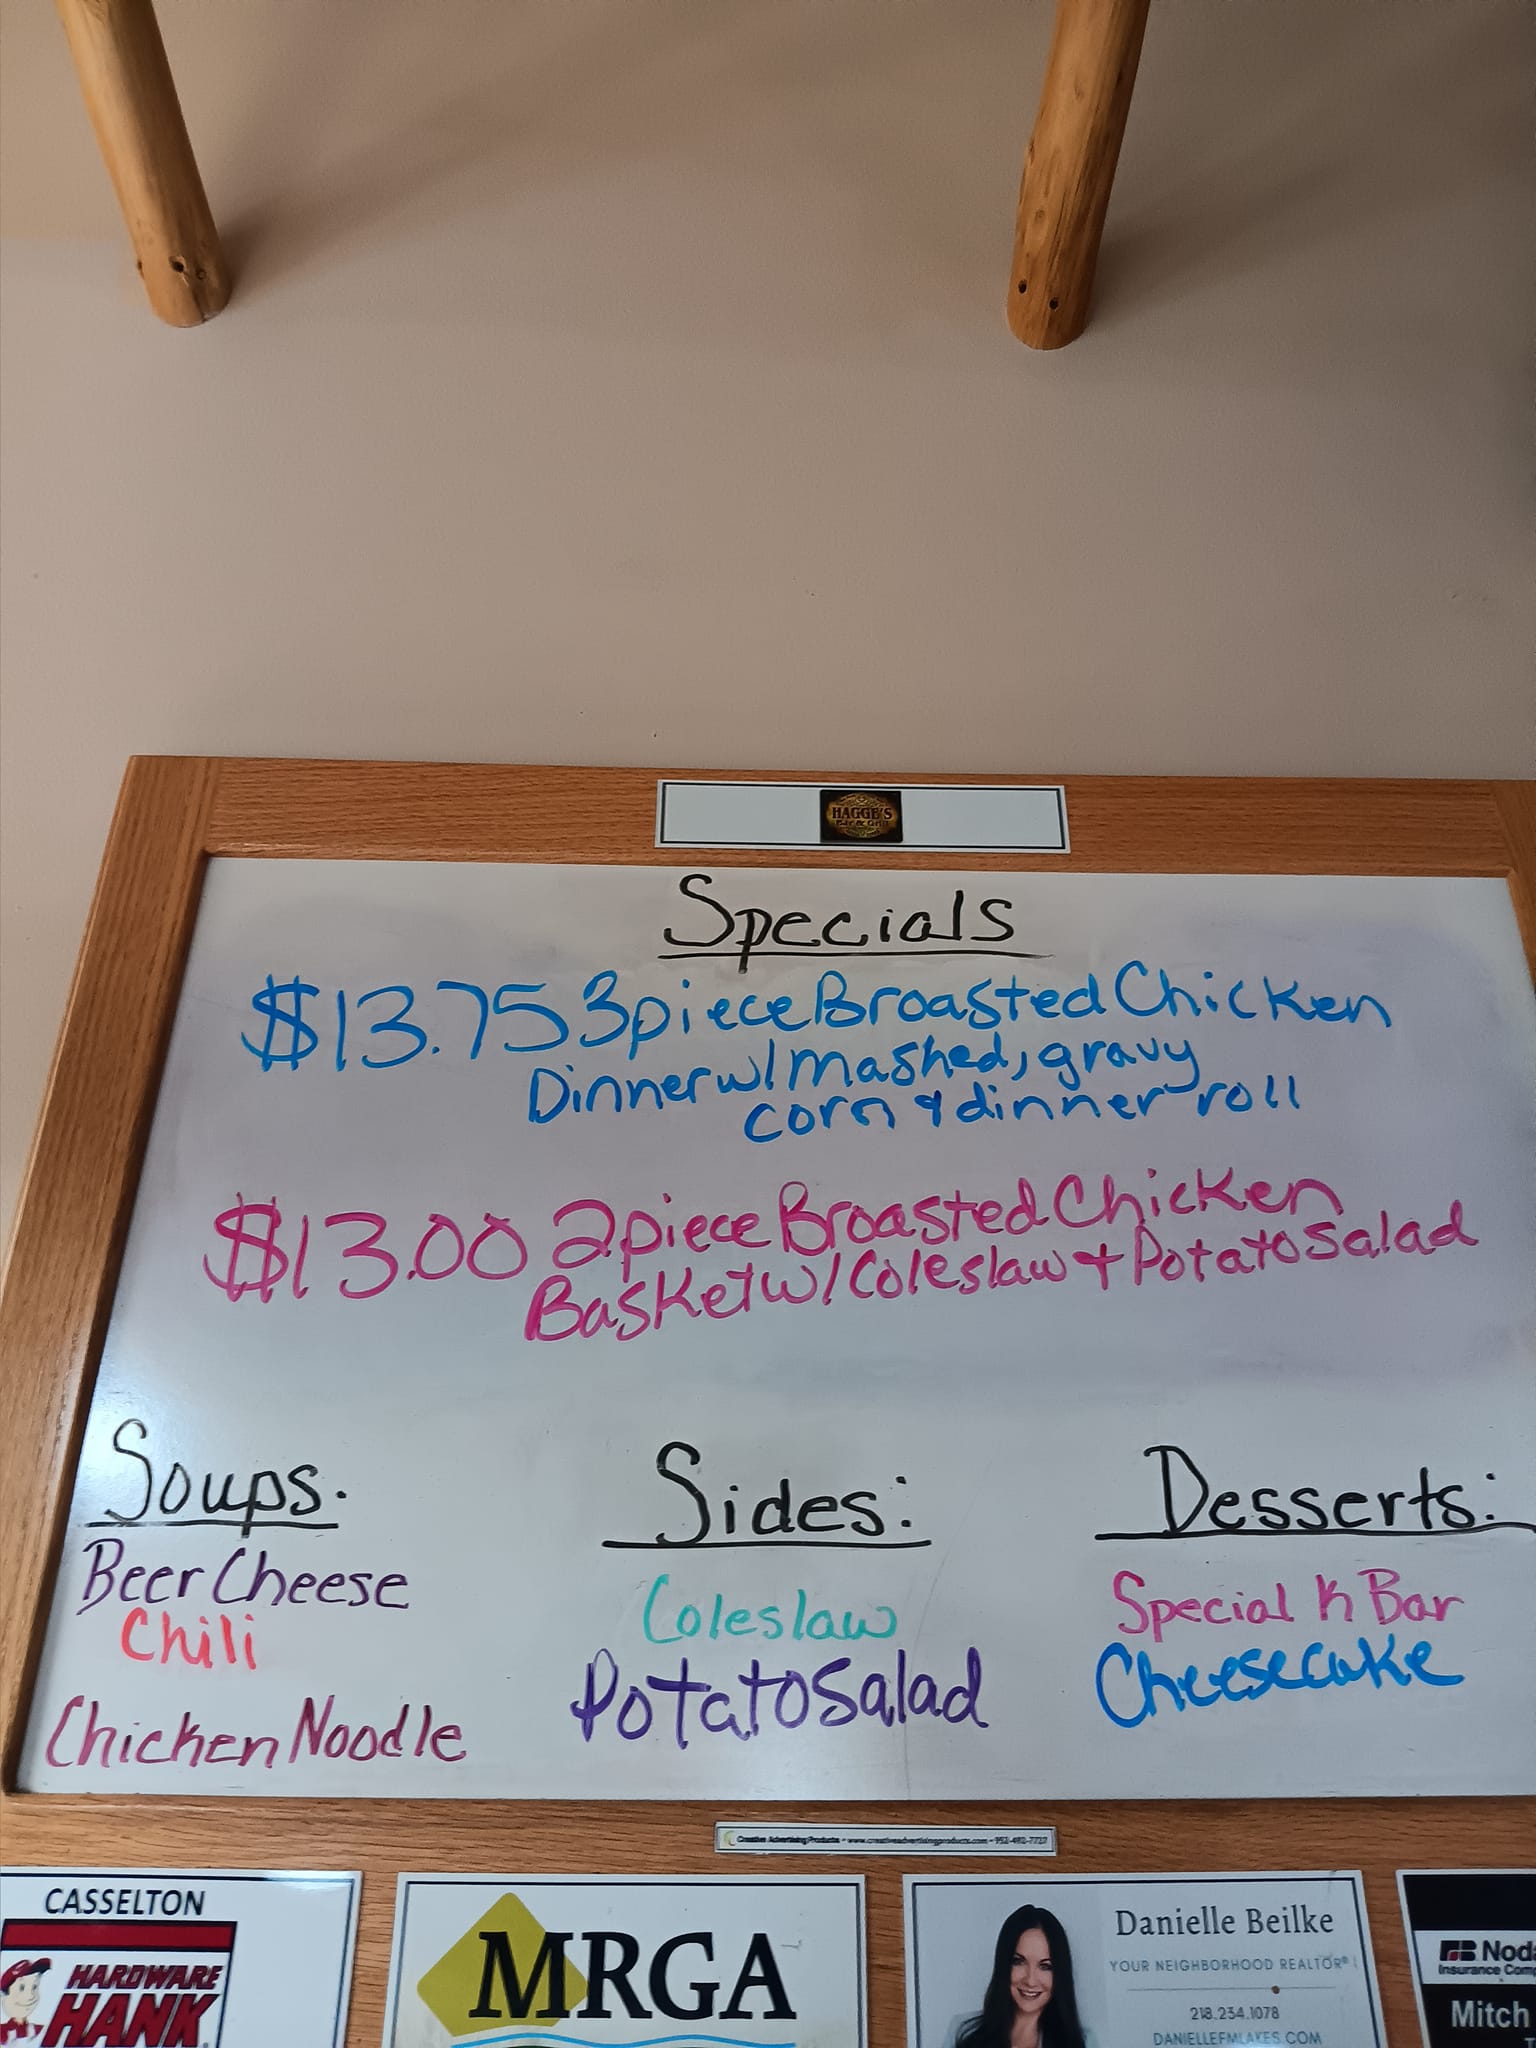 HAGGE'S
Bar & Grill
Specials
$13.75 3piece Broasted Chicken
Dinner w/ mashed, gravy
corn & dinner roll
$13.00 2piece Broasted Chicken
Basket w/ Coleslaw + Potato Salad
Soups:
Beer Cheese
Chili
Chicken Noodle
Sides:
Coleslaw
Potato Salad
Desserts:
Special K Bar
Cheesecake
Creative Advertising Products - www.creativeadvertisingproducts.com - 952-492-7727
CASSELTON
HARDWARE
HANK
MRGA
Danielle Beilke
YOUR NEIGHBORHOOD REALTOR®
218.234.1078
DANIELLEFMLAKES.COM
Noda
Insurance Comp
Mitch